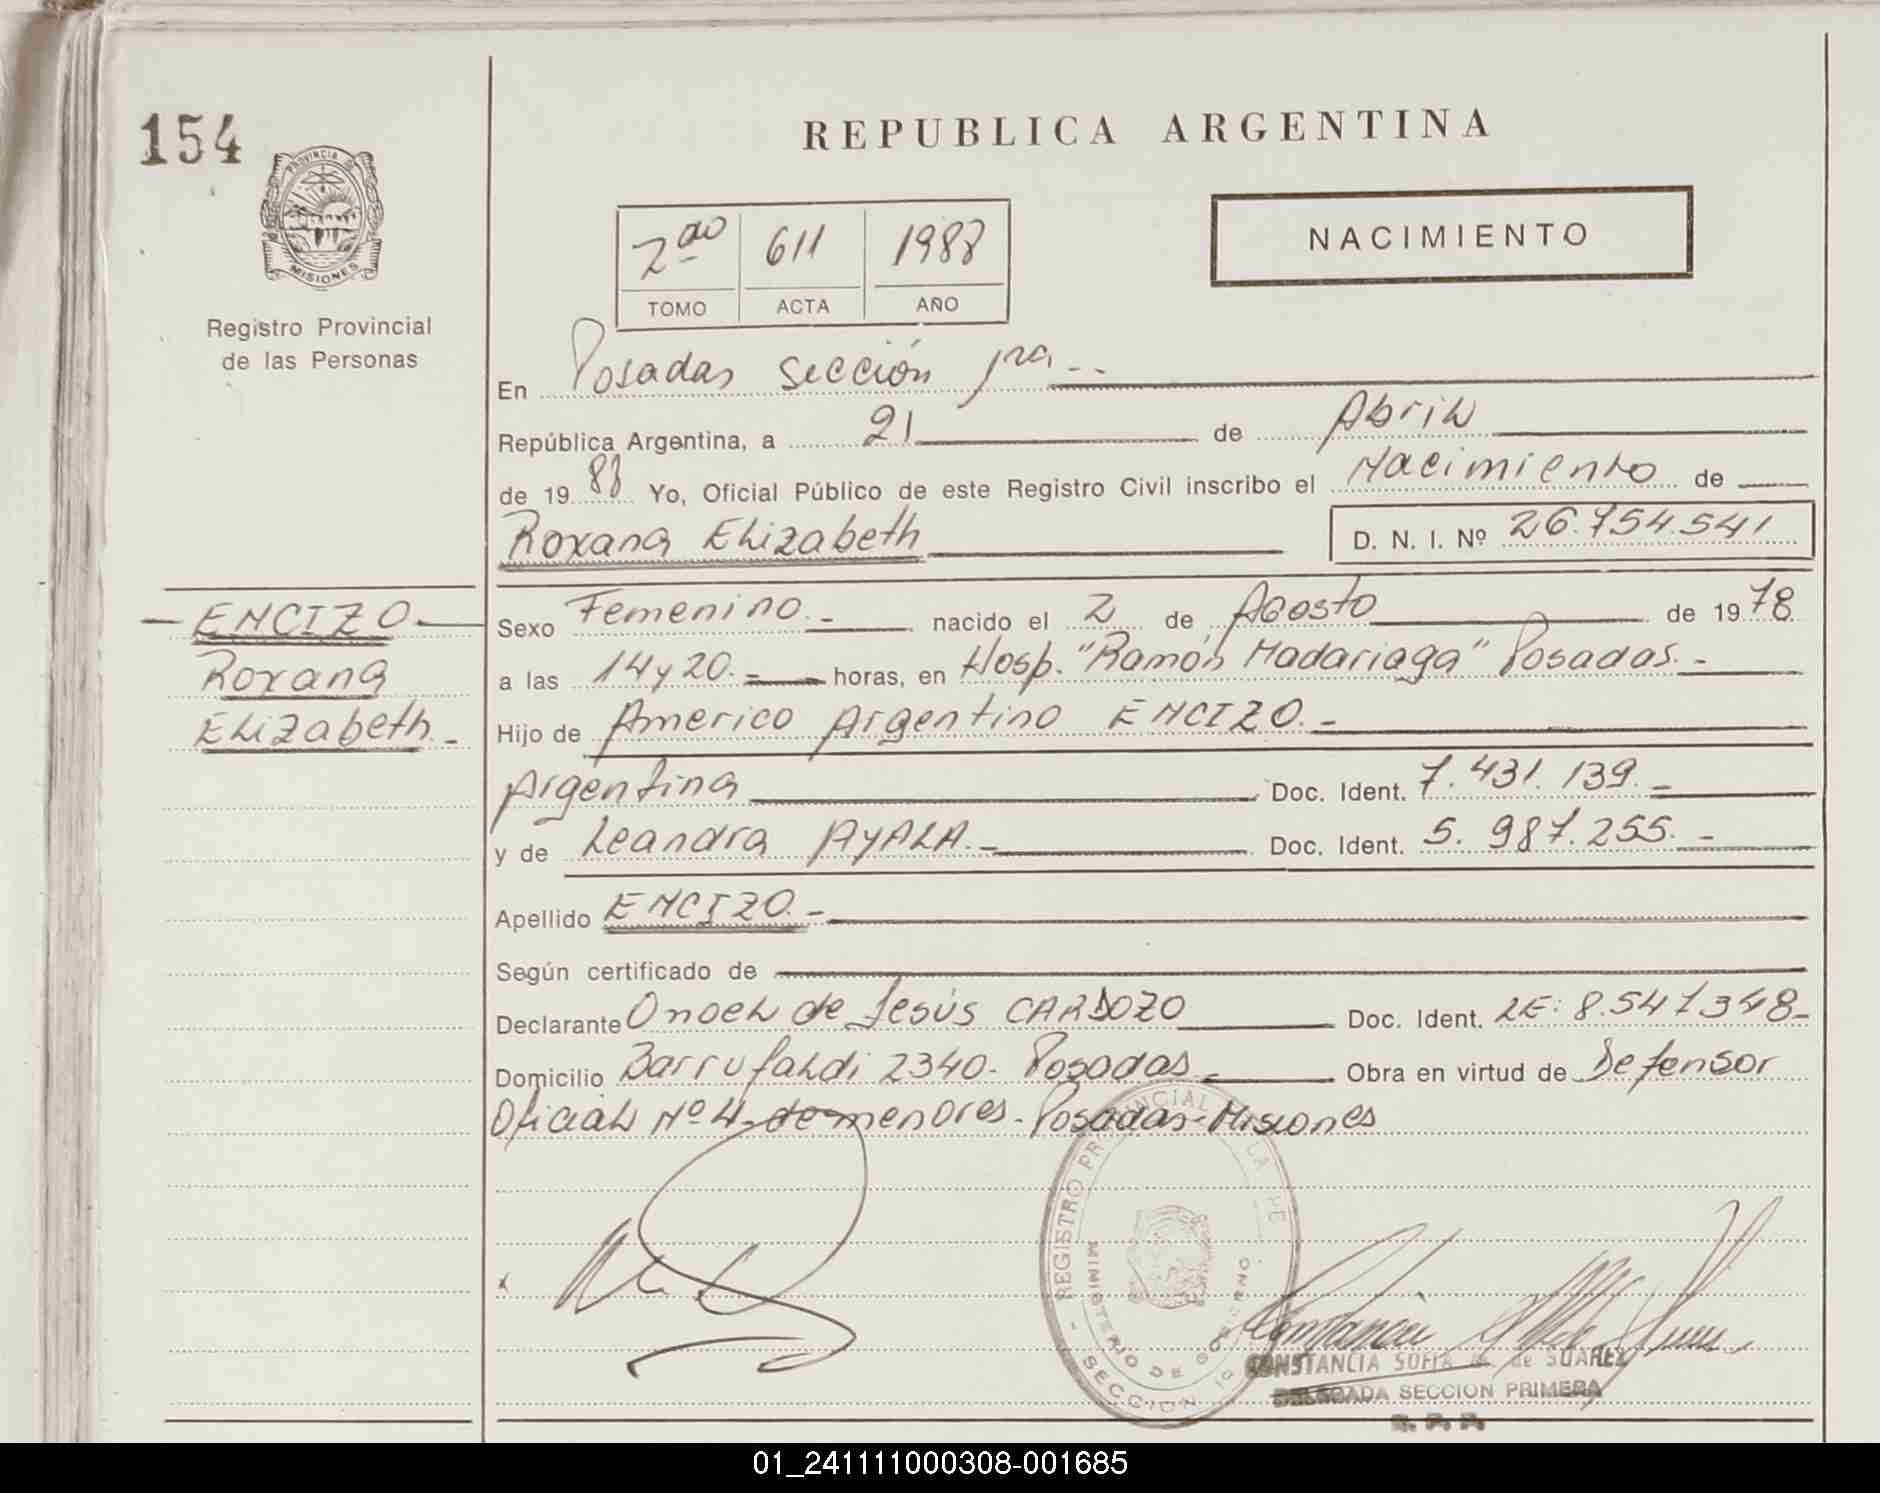 154
PROVINCIA DE
MISIONES
Registro Provincial
de las Personas
REPUBLICA ARGENTINA
2do 611 1988
TOMO ACTA AÑO
NACIMIENTO
En Posadas Sección 1ra.-
República Argentina, a 21 de Abril
de 1988 Yo, Oficial Público de este Registro Civil inscribo el Nacimiento de
Roxana Elizabeth D. N. I. Nº 26.754.541
ENCIZO
Roxana
Elizabeth.-
Sexo Femenino.- nacido el 2 de Agosto de 1978
a las 14 y 20.- horas, en Hosp. "Ramón Madariaga" Posadas.-
Hijo de Americo Argentino ENCIZO.-
Argentina Doc. Ident. 7.431.139.-
y de Leandra AYALA.- Doc. Ident. 5.987.255.-
Apellido ENCIZO.-
Según certificado de
Declarante Onoel de Jesús CARDOZO Doc. Ident. LE: 8.547.348-
Domicilio Barrufaldi 2340- Posadas- Obra en virtud de Defensor
Oficial Nº 4 de menores- Posadas- Misiones
REGISTRO PROVINCIAL DE LAS PE
MINISTERIO DE GOBIERNO
- SECCION 1º
CONSTANCIA SOFIA de SUAREZ
DELEGADA SECCION PRIMERA
R. P. P.
01_241111000308-001685